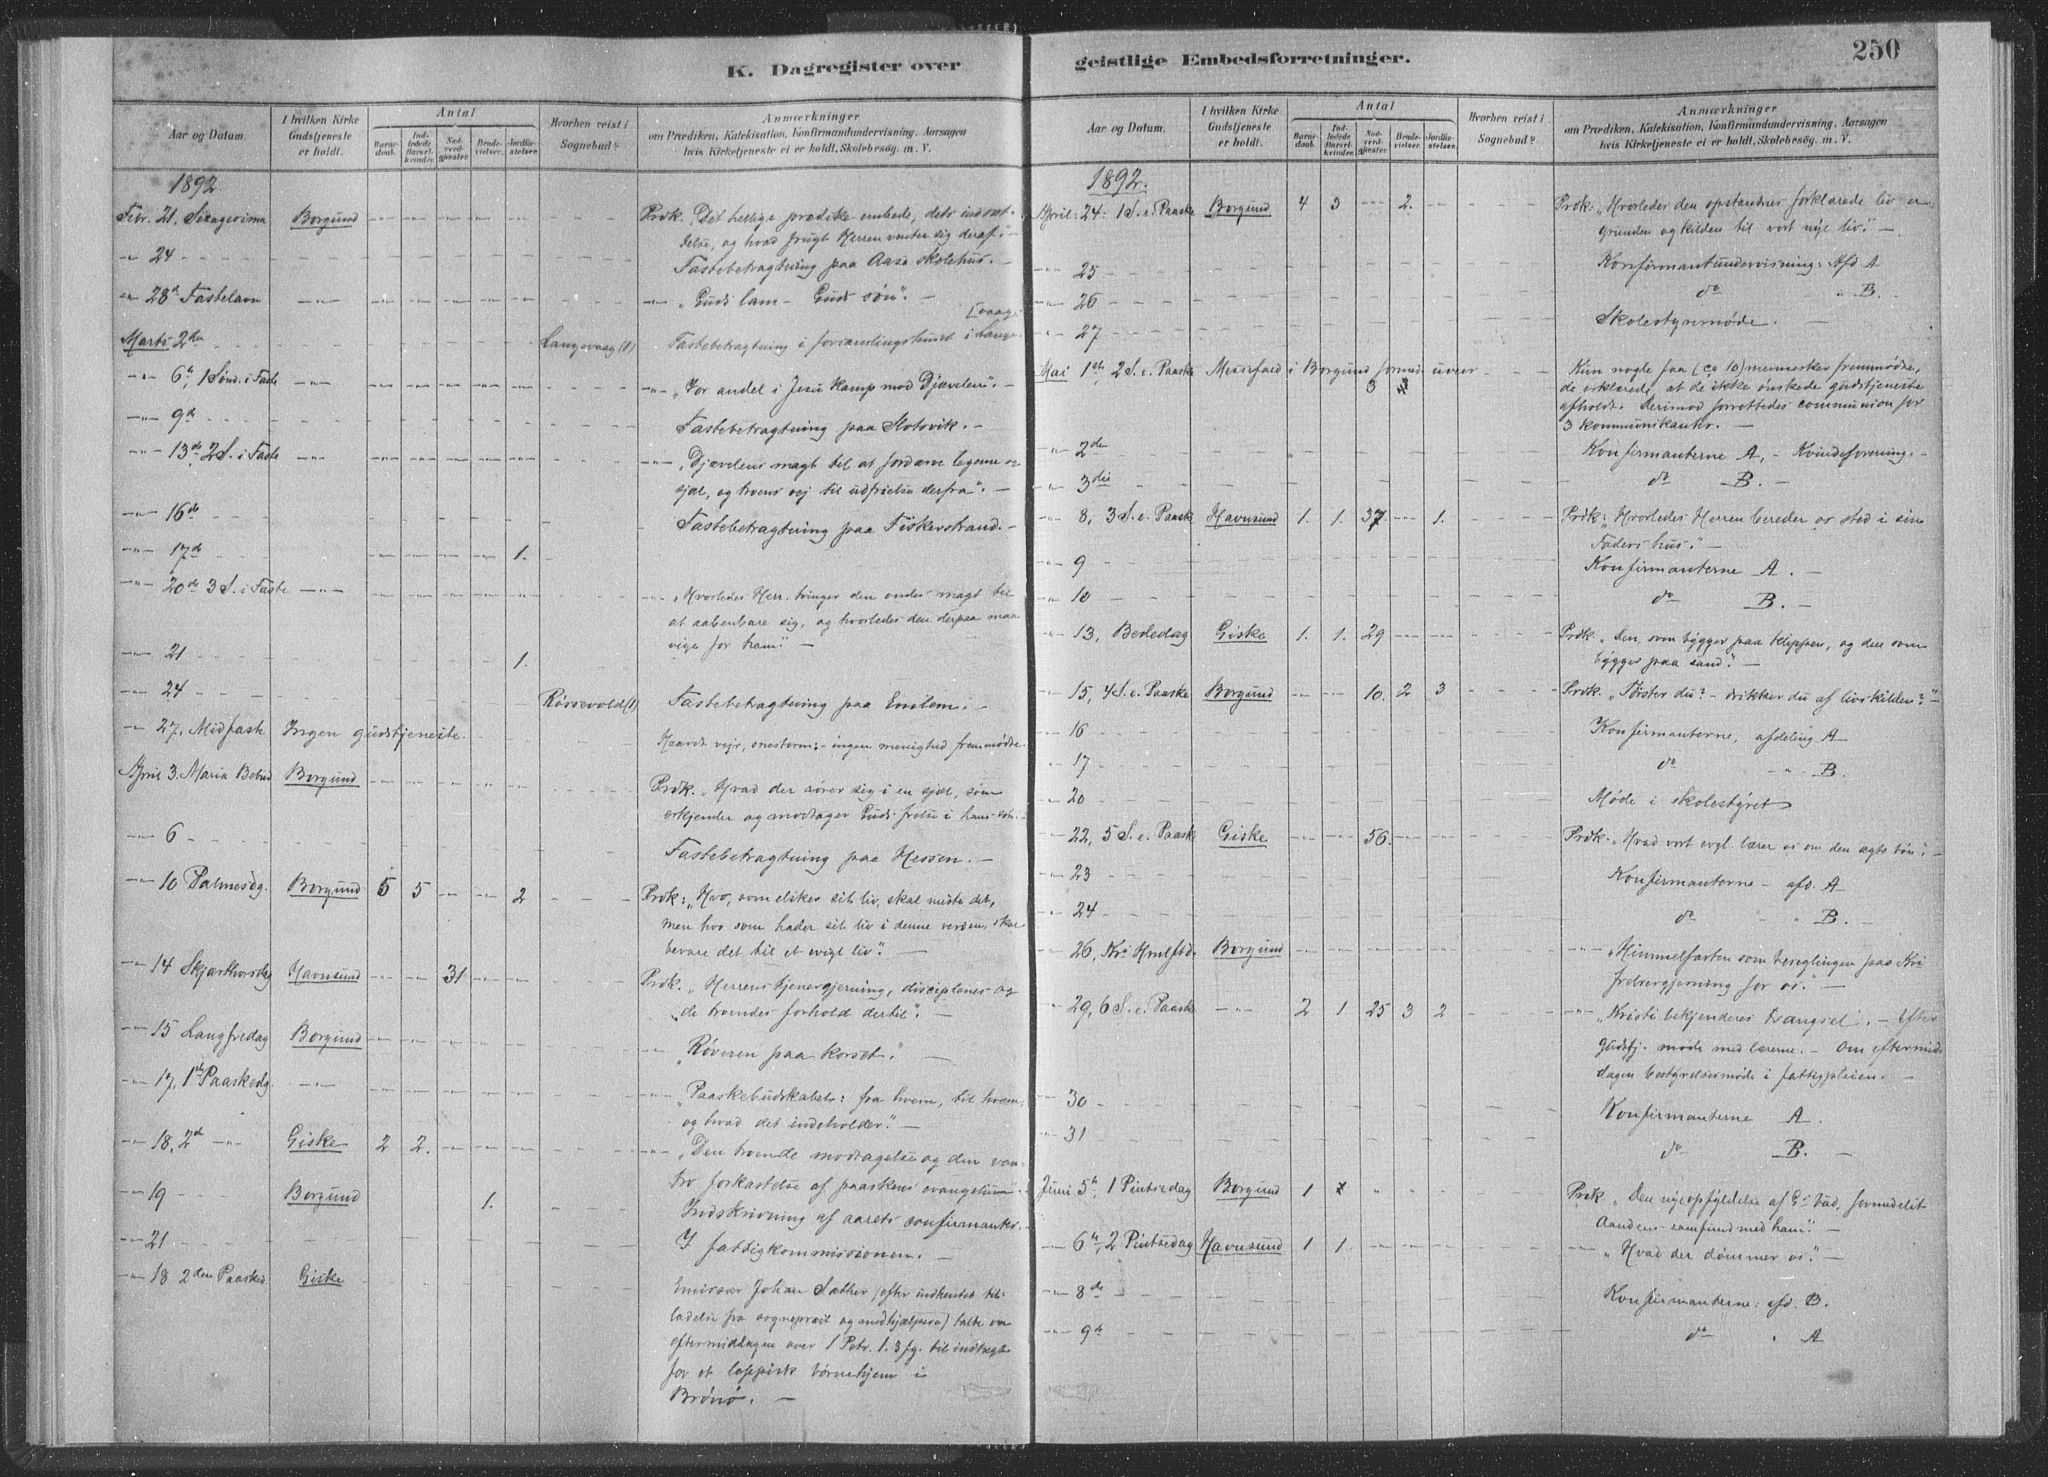 K. Dagregister over
Aar og Datum.
I hvilken Kirke Gudstjeneste er holdt.
Antal
Barnedaab.
Indledede Barselkvinder.
Nadverdgjester.
Brudevielser.
Jordfæstelser.
Hvorhen reist i Sognebud?
Anmærkninger
om Prædiken, Katekisation, Konfirmandundervisning, Aarsagen
hvis Kirketjeneste ei er holdt, Skolebesøg. m. V.
1892
Febr. 21. Sexagesima Borgund Prdk. „Det hellige prædikeembede, dets indstif-
telse, og hvad frugt Herren venter sig deraf“. —
24 Fastebetragtning paa Aase skolehus. —
28de Fastelavn „Guds lam – Guds søn“. —
Marts 2den Langevaag (1) Fastebetragtning i forsamlingshuset i Lange-
[vaag
6te, 1 Sønd. i Faste „Vor andel i Jesu kamp mod Djævelen“. —
9de Fastebetragtning paa Slotsvik. —
13de, 2 S. i Faste „Djævelens magt til at fordærve legeme og
sjæl, og troens vej til udfrielse derfra“. —
16de Fastebetragtning paa Fiskerstrand. —
17de 1.
20de 3 S. i Faste „Hvorledes Herr. tvinger den ondes magt til
at aabenbare sig, og hvorledes den derpaa maa
vige for ham“. —
21 1.
24 Røssevold (1) Fastebetragtning paa Emlem. —
27. Midfaste Ingen gudstjeneste. Haardt vejr, snestorm; – ingen menighed fremmødte.
April 3. Maria Bebud Borgund Prdk. „Hvad der rører sig i en sjæl, som
erkjender og modtager Guds frelse i hans søn“. —
6 Fastebetragtning paa Hessen. —
10 Palmesdg. Borgund 5 5 2 Prdk: „Hvo, som elsker sit liv, skal miste det,
men hvo som hader sit liv i denne verden, skal
bevare det til et evigt liv“. —
14 Skjærthorsdag Havnsund 31 Prdk. „Herrens tjenergjerning, disciplenes og
de troendes forhold dertil“. —
15 Langfredag Borgund „Røveren paa korset“. —
17, 1ste Paaskedg. „Paaskebudskabet: fra hvem, til hvem,
og hvad det indeholder“. —
18, 2den Giske 2 2. „Den troende modtagelse og den van-
tro forkastelse af paaskens evangelium“. —
19 Borgund 1. Indskrivning af aarets confirmanter. —
21 I fattigkommissionen. —
18 2den Paasked Giske Emissær Johan Sæther (efter indhentet til-
ladelse fra sogneprest og medhjælpere) talte om
eftermiddagen over 1 Petr. 1. 3 fg. til indtægt
for et lappisk børnehjem i
Brønø. —
geistlige Embedsforretninger.
250
Aar og Datum.
I hvilken Kirke Gudstjeneste er holdt.
Antal
Barnedaab.
Indledede Barselkvinder.
Nadverdgjester.
Brudevielser.
Jordfæstelser.
Hvorhen reist i Sognebud?
Anmærkninger
om Prædiken, Katekisation, Konfirmandundervisning, Aarsagen
hvis Kirketjeneste ei er holdt, Skolebesøg. m. V.
1892.
April: 24: 1 S. e. Paaske Borgund 4 3 2. Prdk: „Hvorledes den opstandnes forklarede liv er
grunden og kilden til vort nye liv“. —
25 Konfirmantundervisning: Afd A
26 do „ B. —
27 Skolestyremøde. —
Mai 1ste, 2 S. e. Paaske Messefald i Borgund formed. uveir 3 Kun nogle faa (ca 10) mennesker fremmødte,
de erklærede, at de ikke ønskede gudstjeneste
afholdt. Derimod forrettedes communion for
3 kommunikanter. —
2den Konfirmanterne A, – Kvindeforening. —
3die do B. —
8, 3 S. e. Paaske Havnsund 1. 1. 37 1. Prdk: „Hvorledes Herren bereder os sted i sin
Faders hus“. —
9 Konfirmanterne A. —
10 do B. —
13, Bededag Giske 1. 1. 29 Prdk „Den, som bygger paa klippen, og den som
bygger paa sand“. —
15, 4 S. e. Paaske Borgund 10. 2 3 Prdk. „Tørster du? – drikker du af livskilden?“ —
16 Konfirmanterne, afdeling A
17 do „ B.
20 Møde i skolestyret
22, 5 S. e. Paaske Giske 56. Prdk. „Hvad vort evgl. lærer os om den ægte bøn“. —
23 Konfirmanterne – afd. A
24 do „ B. —
26, Kri Hmlftdg Borgund „Himmelfarten som beseglingen paa Kri
frelsergjerning for os“. —
29, 6 S. e. Paaske 2 1 25 3 2 „Kristi bekjenderes trængsel“. – Efter
gudstj. møde med lærerne. – Om eftermid-
dagen bestyrelsesmøde i fattigpleien. —
30 Konfirmanterne A.
31 do B. —
Juni 5te, 1 Pintsedag Borgund 1 Prdk „Den nye opfyldelse af Gs bud, formedelst
Aandens samfund med ham“. —
6te, 2 Pintsedag Havnsund 1 1. „Hvad der dømmer os“. —
8de Konfirmanterne: afd. B.
9de do „ A